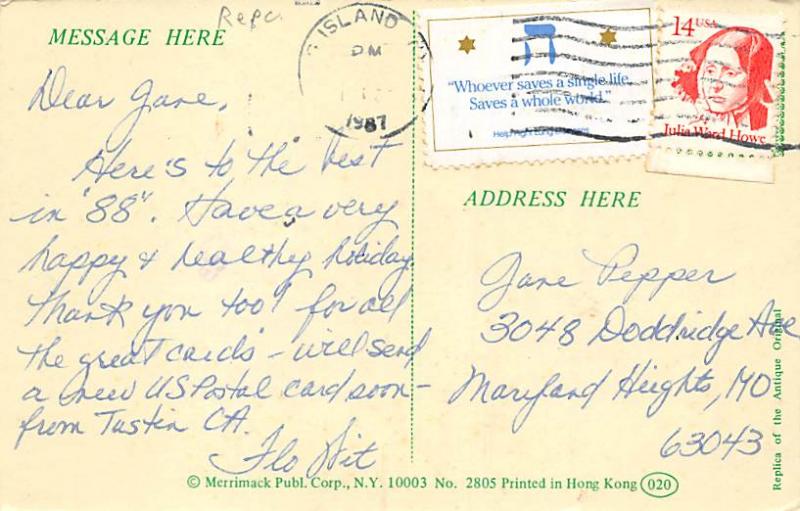 Repr
MESSAGE HERE
ISLAND
PM
1987
"Whoever saves a single life,
Saves a whole world."
ה
14 USA
Julia Ward Howe
Dear Jane,
Here's to the best
in "88". Have a very
happy & healthy holiday
Thank you too! for all
the great cards - will send
a new US Postal card soon -
from Tustin CA.
Flo
ADDRESS HERE
Jane Pepper
3048 Doddridge Ave
Maryland Heights, MO
63043
Replica of the Antique Original
© Merrimack Publ. Corp., N.Y. 10003 No. 2805 Printed in Hong Kong 020